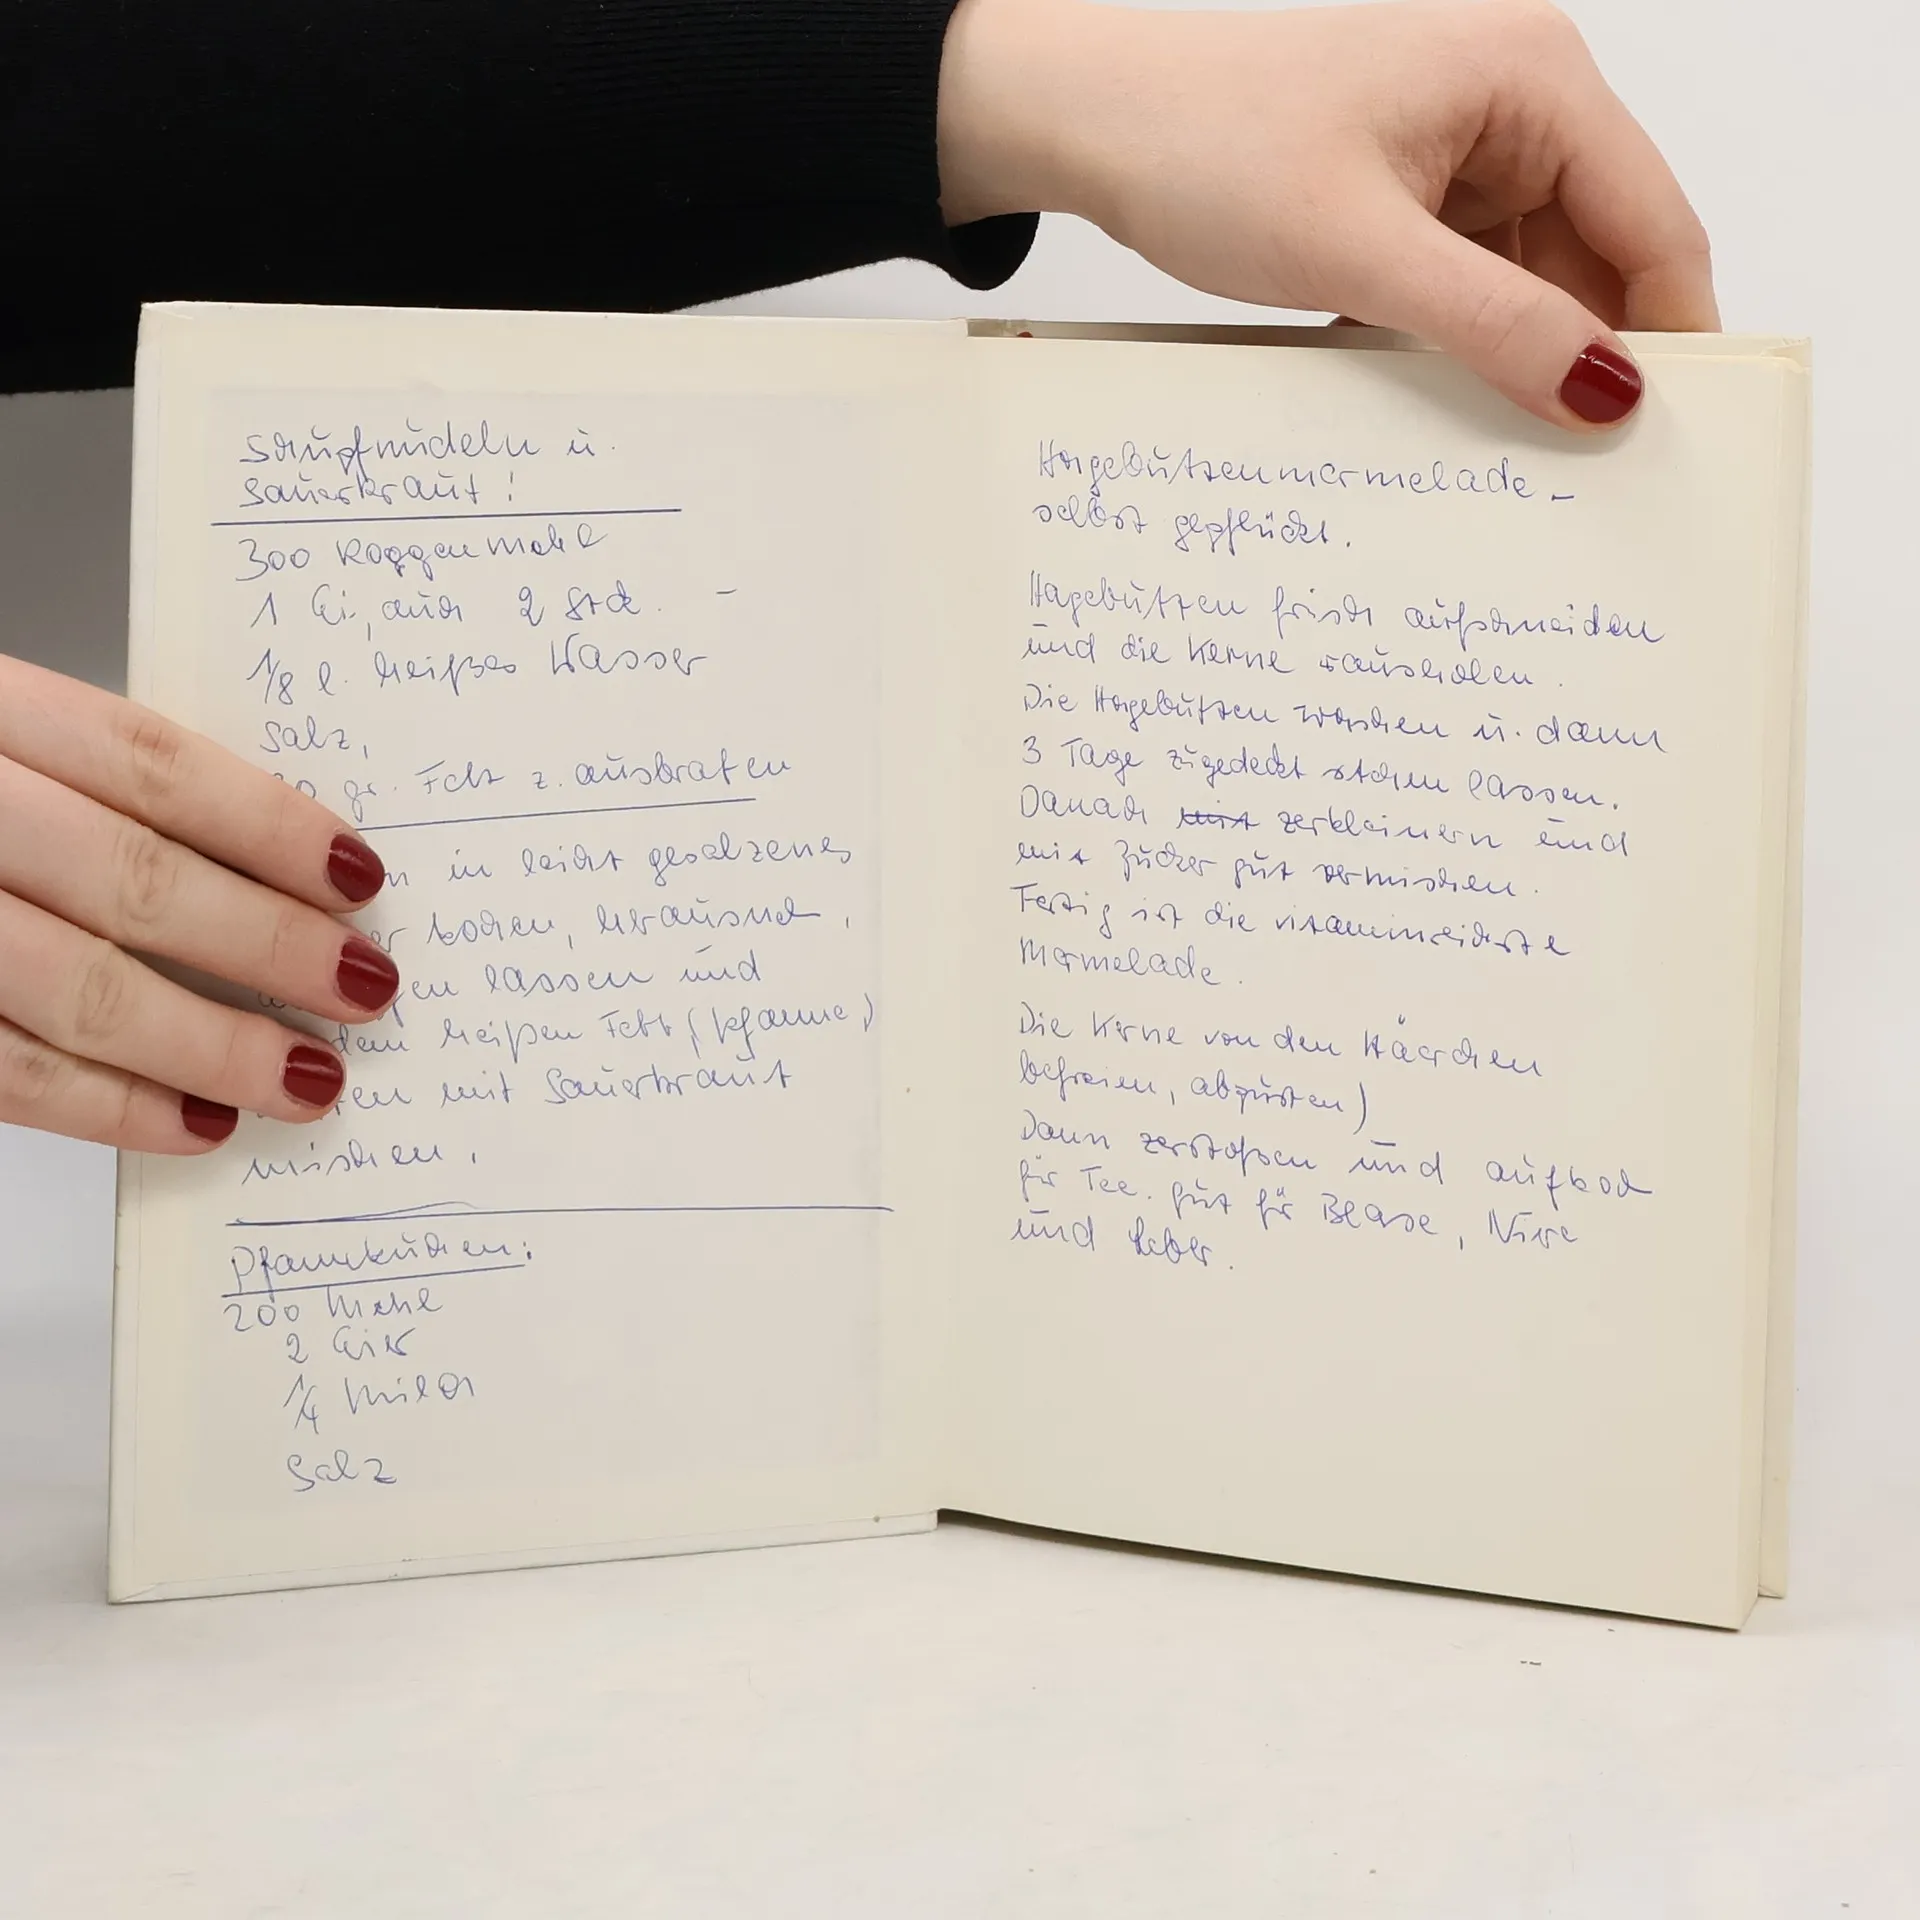 Schupfnudeln u.
Sauerkraut!
300 Roggenmehl
1 Ei, auch 2 Stck. –
1/8 l. heißes Wasser
Salz,
0 gr. Fett z. ausbraten
in leicht gesalzenes
kochen, herausneh,
lassen und
dem heißen Fett (Pfanne)
mit Sauerkraut
mischen.
Pfannkuchen:
200 Mehl
2 Eier
1/4 Milch
Salz
Hagebuttenmarmelade –
selbst gepflückt.
Hagebutten frisch aufschneiden
und die Kerne rausholen.
Die Hagebutten waschen u. dann
3 Tage zugedeckt stehen lassen.
Danach mit zerkleinern und
mit Zucker gut vermischen.
Fertig ist die vitaminreichste
Marmelade.
Die Kerne von den Häärchen
befreien, abpusten)
Dann zerstoßen und aufkoch
für Tee. gut für Blase, Niere
und Leber.